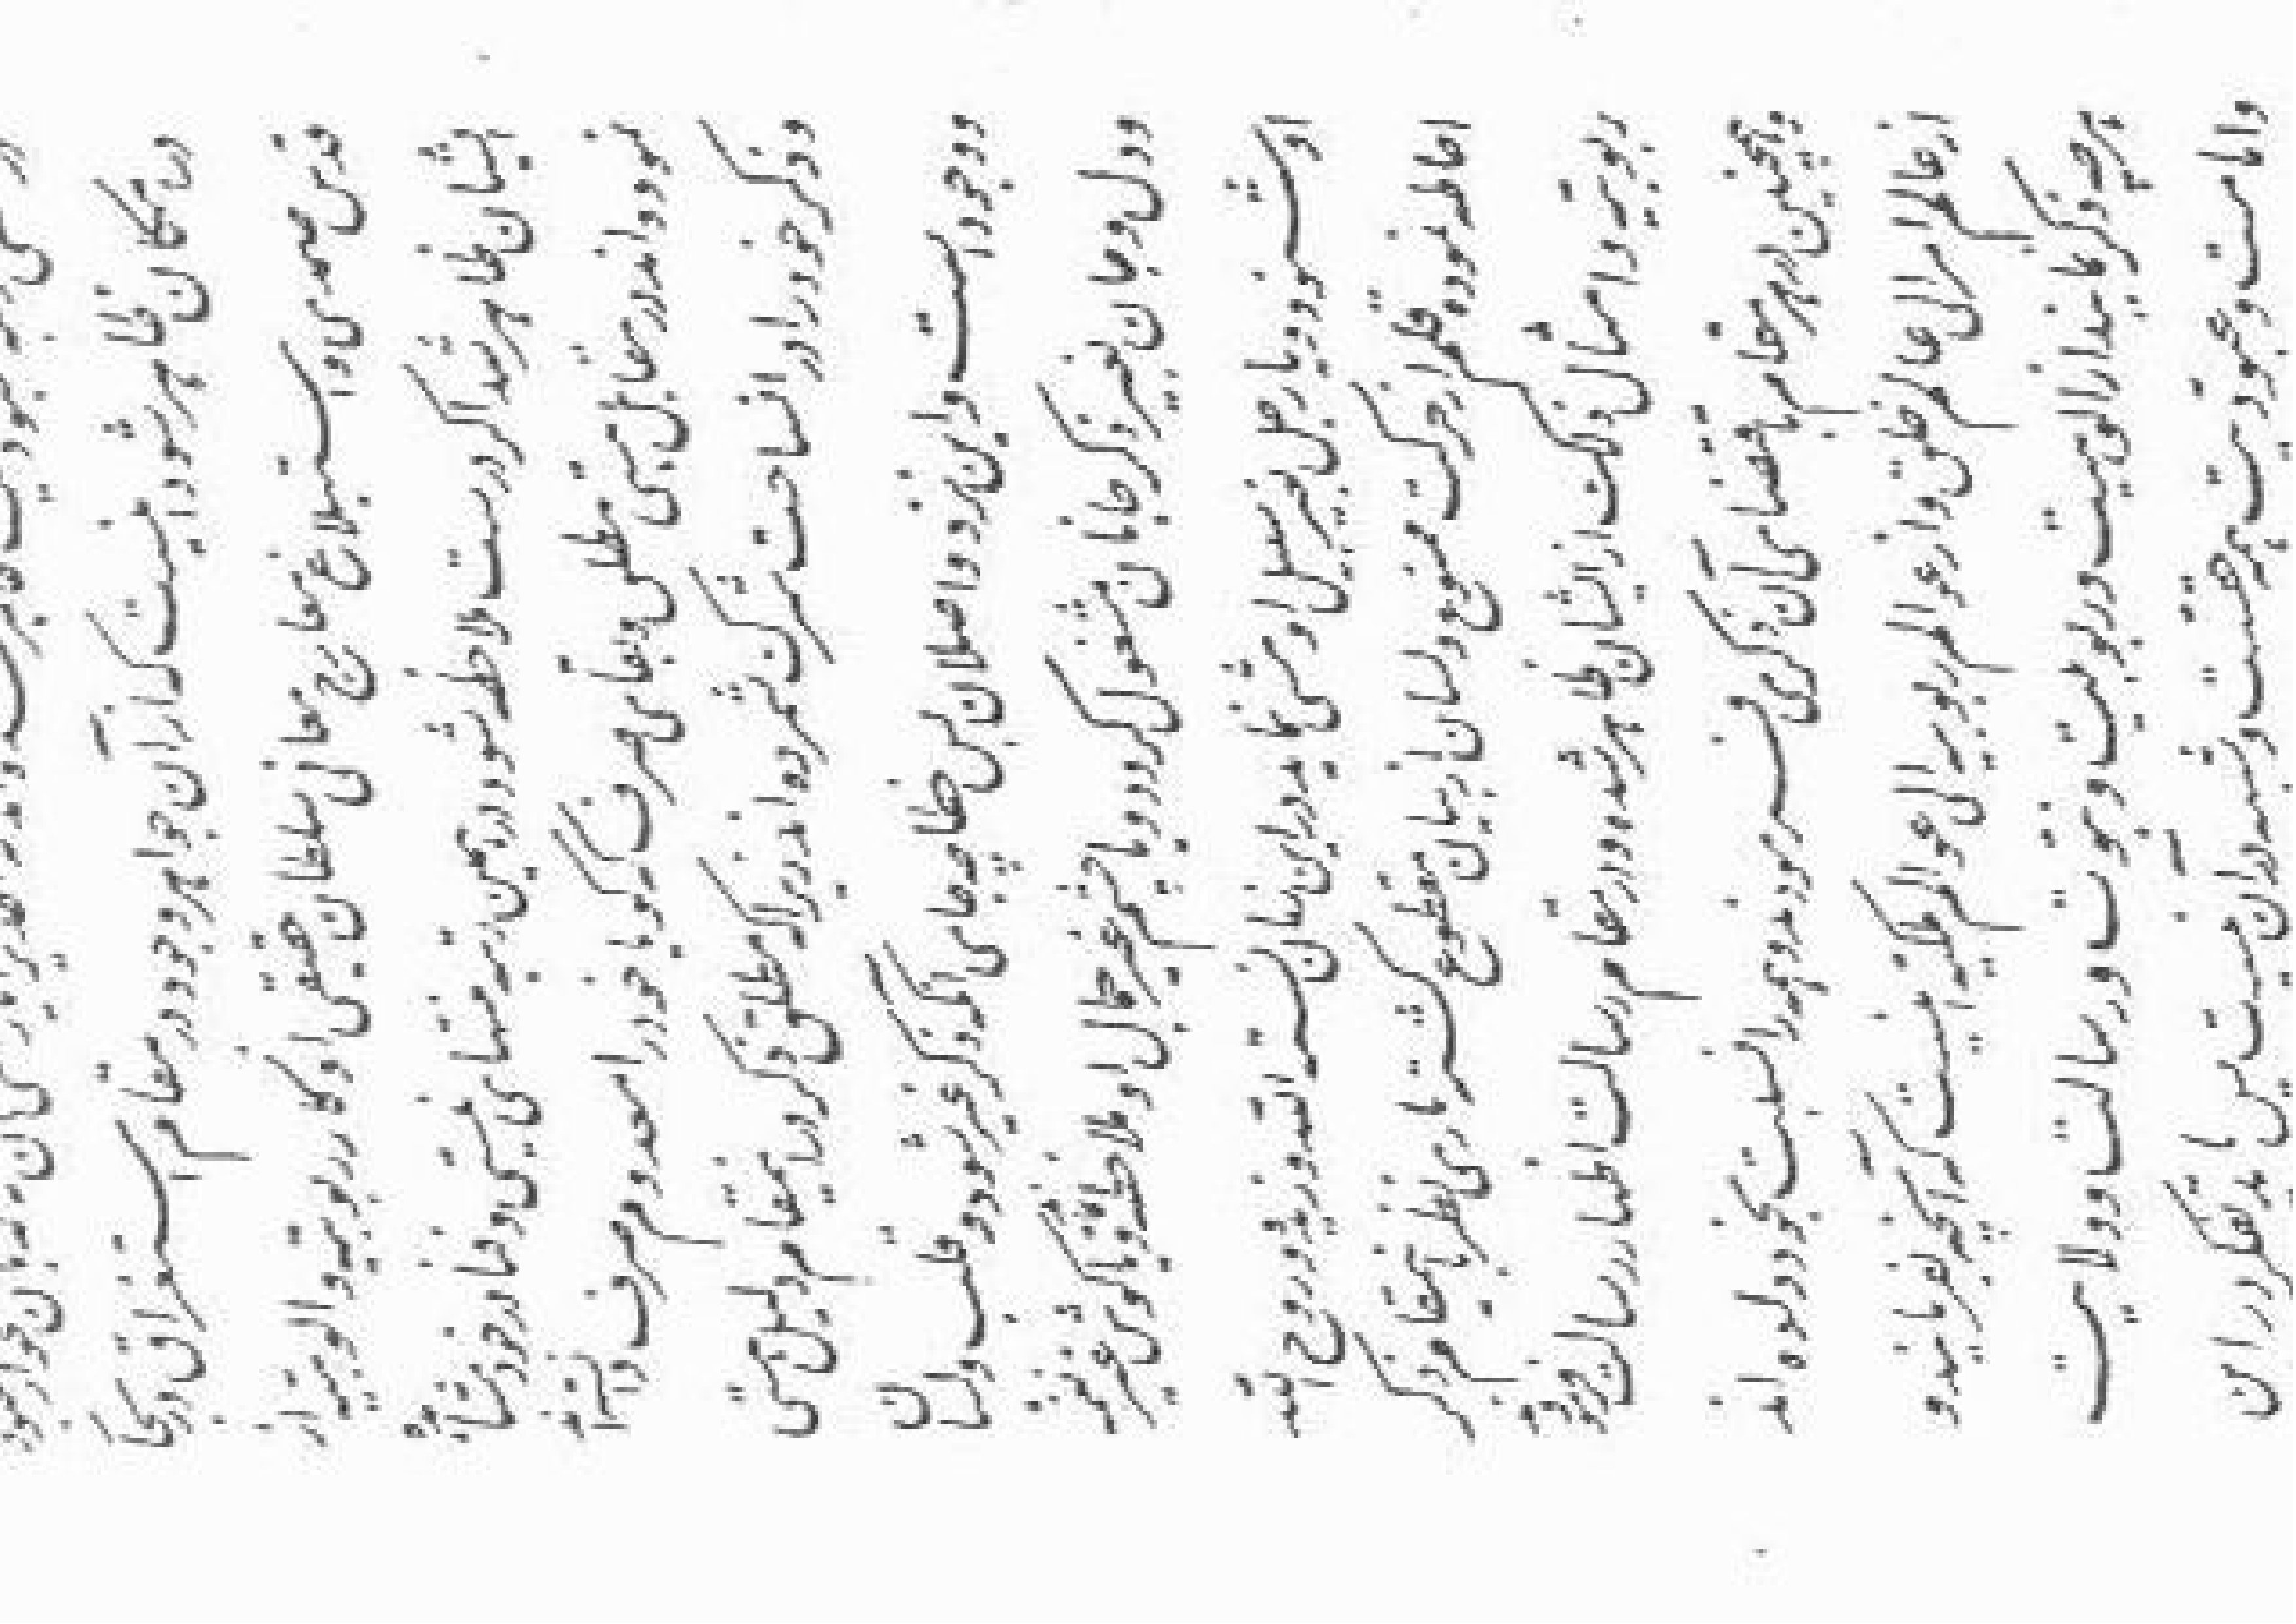 در مکان ظاهر شود اینست که از آن جواهر وجود در مقام استغراق در بحار
قدس صمدی و استبلاغ بمعارج معانی سلطان حقیقی اذکار ربوبیه و الوهیه از
ایشان ظاهر شد اگر درست ملاحظه شود در همین رتبه منتهای نیستی و فنا در خود مشاهده
نمودواند در مقابل هستی مطلق و بقای صرف که گویا خود را معدوم صرف دانسته‌اند
و ذکر خود را در انساحت شرک شمرده‌اند زیرا که مطلق ذکر در اینمقام دلیل هستی
و وجود است و این نزد واصلان بس خطا چه جای آنکه ذکر غیر شود و قلب و لسان
و دل و جان بغیر ذکر جانان مشغول گردد و یا چشم غیر جمال او ملاحظه نماید و یا گوش غیر نغمه
او شنود و یا رجل در غیر سبیل او مشی نماید در این زمان نسمة الله وزیده و روح الله
احاطه نموده قلم از حرکت ممنوع و لسان از بیان مقطوع گشته باری نظر باینمقام ذکر
ربوبیه و امثال ذلک از ایشان ظاهر شده و در مقام رسالت اظهار رسالت فرمودند
و همچنین در هر مقام باقتضای آن ذکری فرمودند و همه را نسبت بخود داده‌اند
از عالم امر الی عالم خلق و از عوالم ربوبیه الی عوالم ملکیه اینست که آنچه بفرمایند و
هرچه ذکر نمایند از الوهیت و ربوبیت و نبوت و رسالت و ولایت
و امامت و عبودیت همه حق است و شبهه در آن نیست پس باید تفکر در این